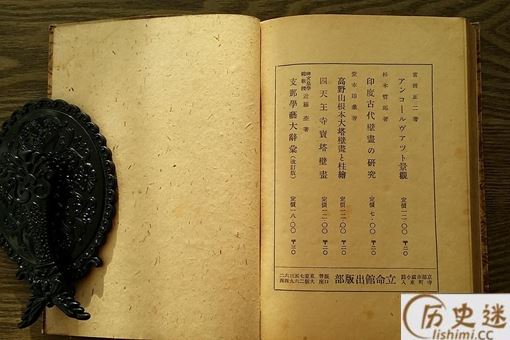 富田正二著
アンコールヴアツト景觀 定價一二・〇〇
杉本哲郎著
印度古代壁畫の研究 定價七・〇〇
堂本印象著
高野山根本大塔壁畫と柱繪 定價一二・〇〇
四天王寺寶塔壁畫 定價一二・〇〇
近藤杢著
支那學藝大辭彙(改訂版) 定價一八・〇〇
立命館出版部
历史迷
lishimi.cc